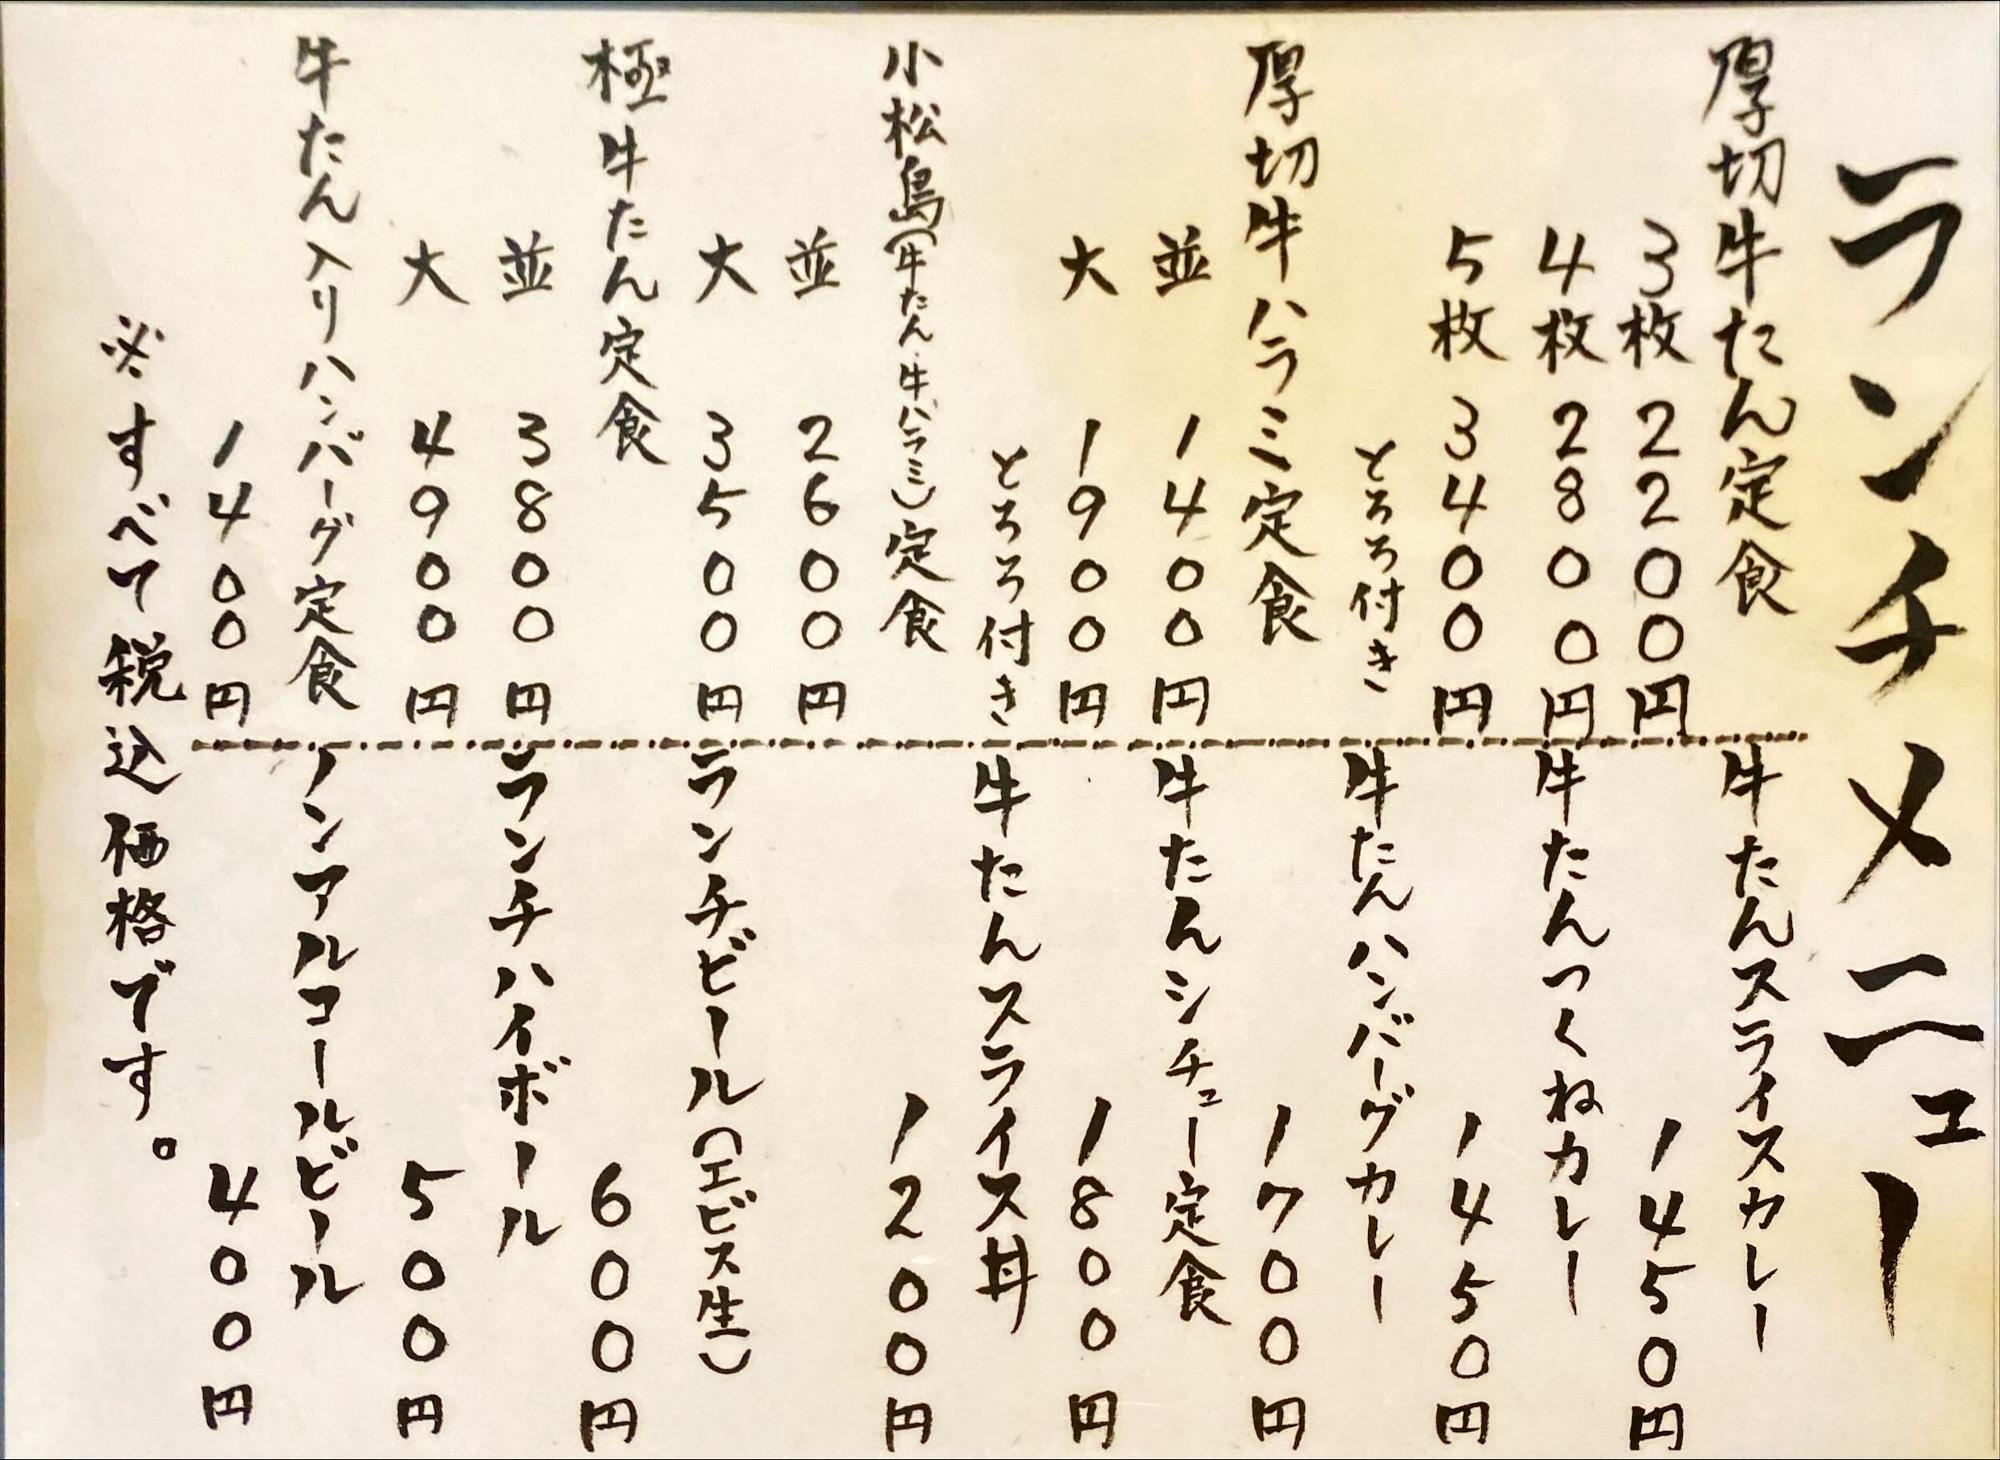 ランチメニュー
厚切牛たん定食
3枚 2200円
4枚 2800円
5枚 3400円
とろろ付き
厚切牛ハラミ定食
並 1400円
大 1900円
とろろ付き
小松島(牛たん、牛ハラミ)定食
並 2600円
大 3500円
極牛たん定食
並 3800円
大 4900円
牛たん入りハンバーグ定食
1400円
牛たんスライスカレー
1450円
牛たんつくねカレー
1450円
牛たんハンバーグカレー
1700円
牛たんシチュー定食
1800円
牛たんスライス丼
1200円
ランチビール(エビス生)
600円
ランチハイボール
500円
ノンアルコールビール
400円
※すべて税込価格です。